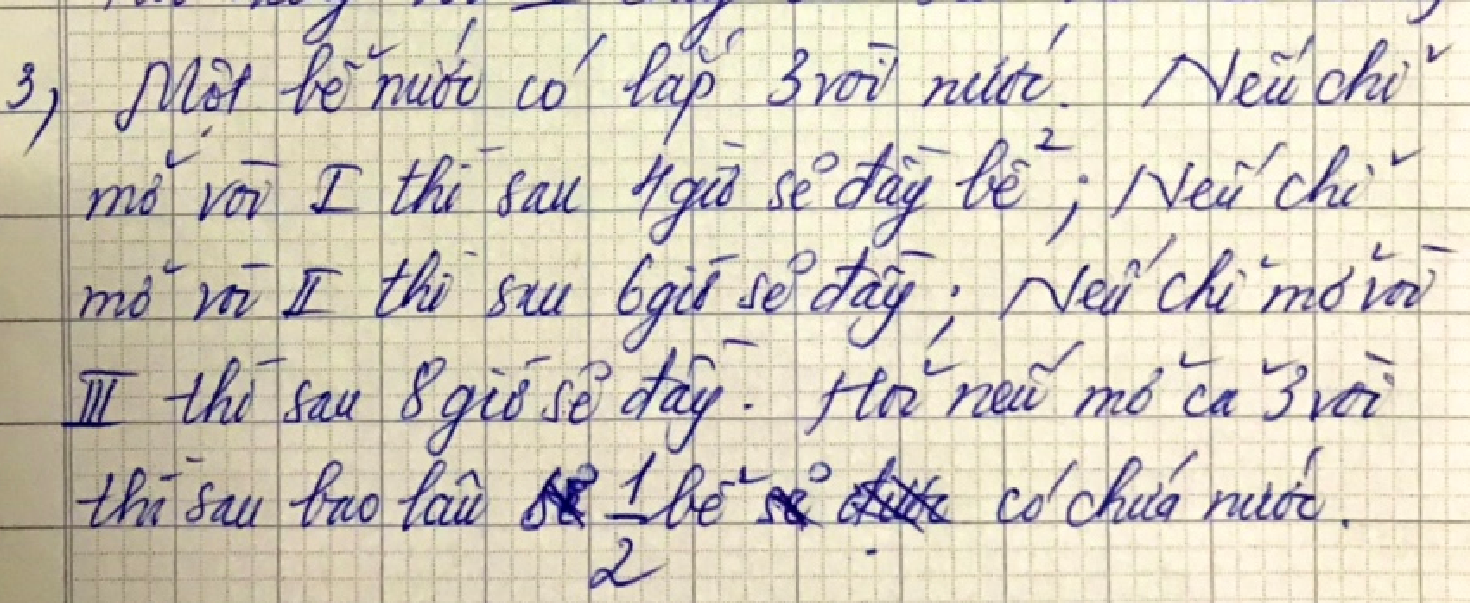 3) Một bể nước có lắp 3 vòi nước. Nếu chỉ
mở vòi I thì sau 4 giờ sẽ đầy bể; Nếu chỉ
mở vòi II thì sau 6 giờ sẽ đầy; Nếu chỉ mở vòi
III thì sau 8 giờ sẽ đầy. Hỏi nếu mở cả 3 vòi
thì sau bao lâu 1/2 bể có chứa nước.